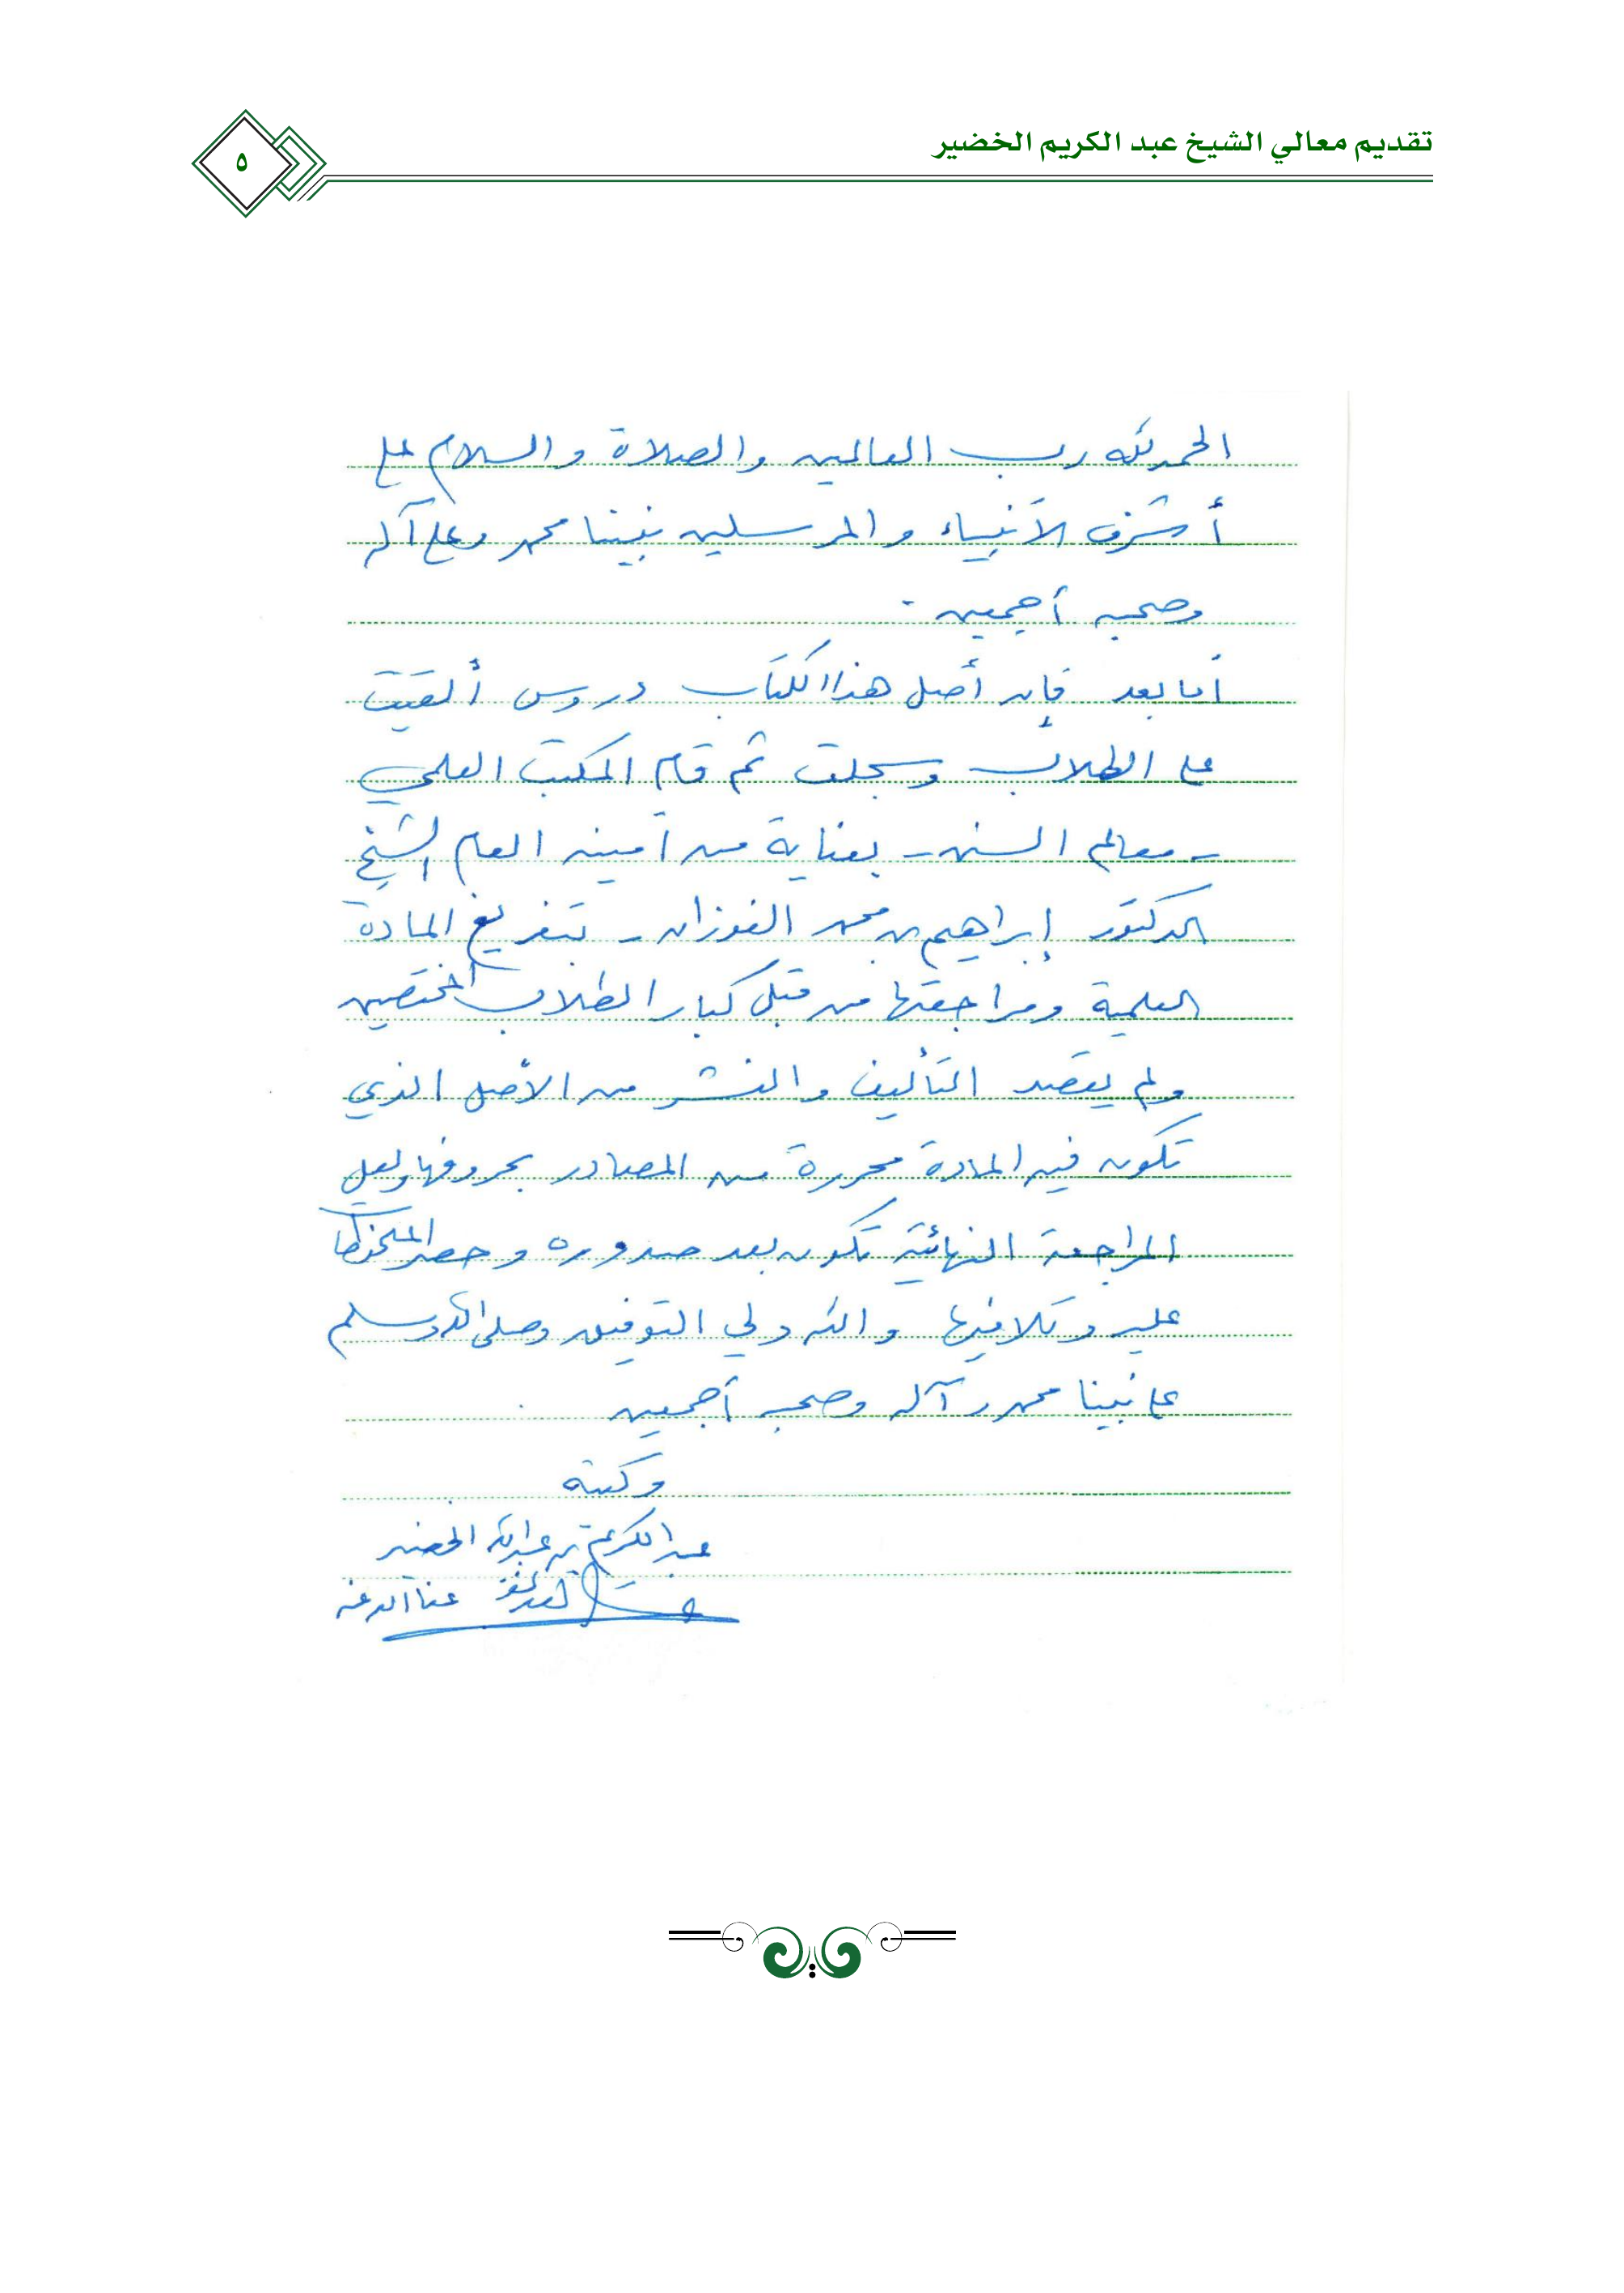 تقديم معالي الشيخ عبد الكريم الخضير
٥
الحمد لله رب العالمين والصلاة والسلام على
أشرف الأنبياء والمرسلين نبينا محمد وعلى آله
وصحبه أجمعين .
أما بعد فإن أصل هذا الكتاب دروس ألقيت
على الطلاب وسجلت ثم قام المكتب العلمي
- معالم السنن - بعناية من أمينه العام الشيخ
الدكتور إبراهيم بن محمد الفوزان - بتفريغ المادة
العلمية ومراجعتها من قبل كبار الطلاب المختصين
ولم يقصد التأليف والنشر من الأصل الذي
تكون فيه المادة محررة من المصادر بحروفها ولعل
المراجعة النهائية تكون بعد صدوره وحصر الملحوظات
عليه وتلافيها والله ولي التوفيق وصلى الله وسلم
على نبينا محمد وآله وصحبه أجمعين
وكتبه
عبد الكريم بن عبد الله الخضير
عفا الله عنه